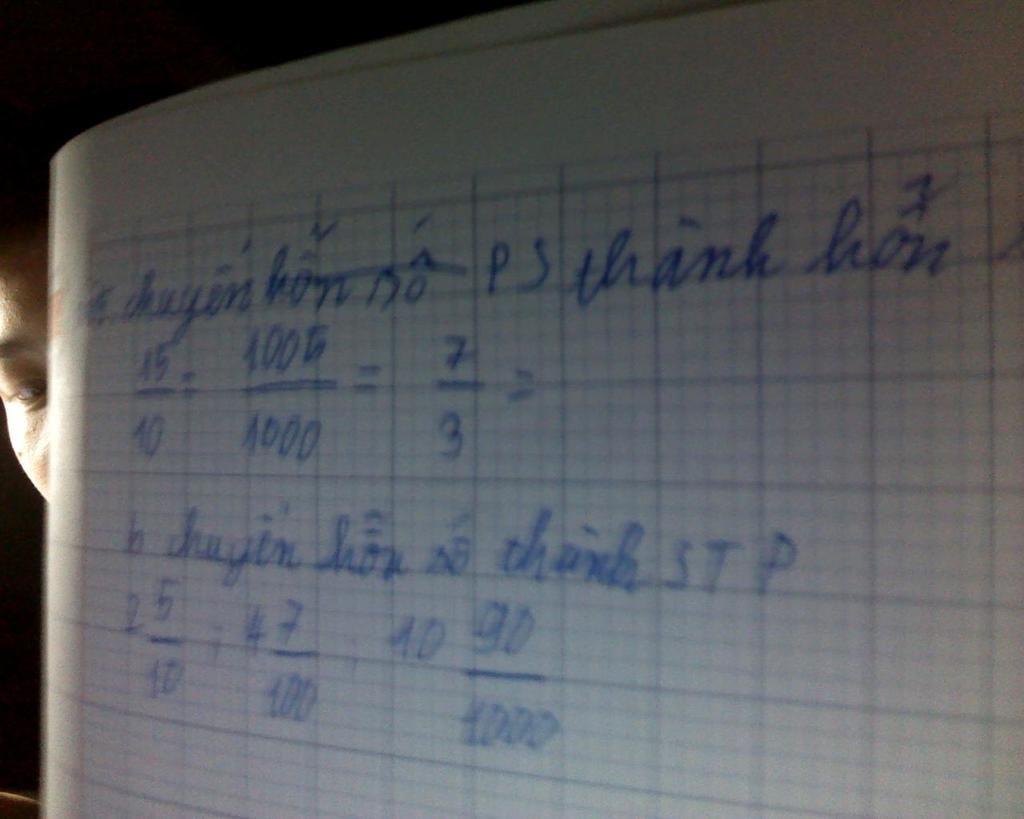 a. chuyển hỗn số PS thành hổn
15 1005 7
10 = 1000 = 3 =
b chuyển hỗn số thành STP
2 5/10 ; 4 7/100 , 10 90/1000